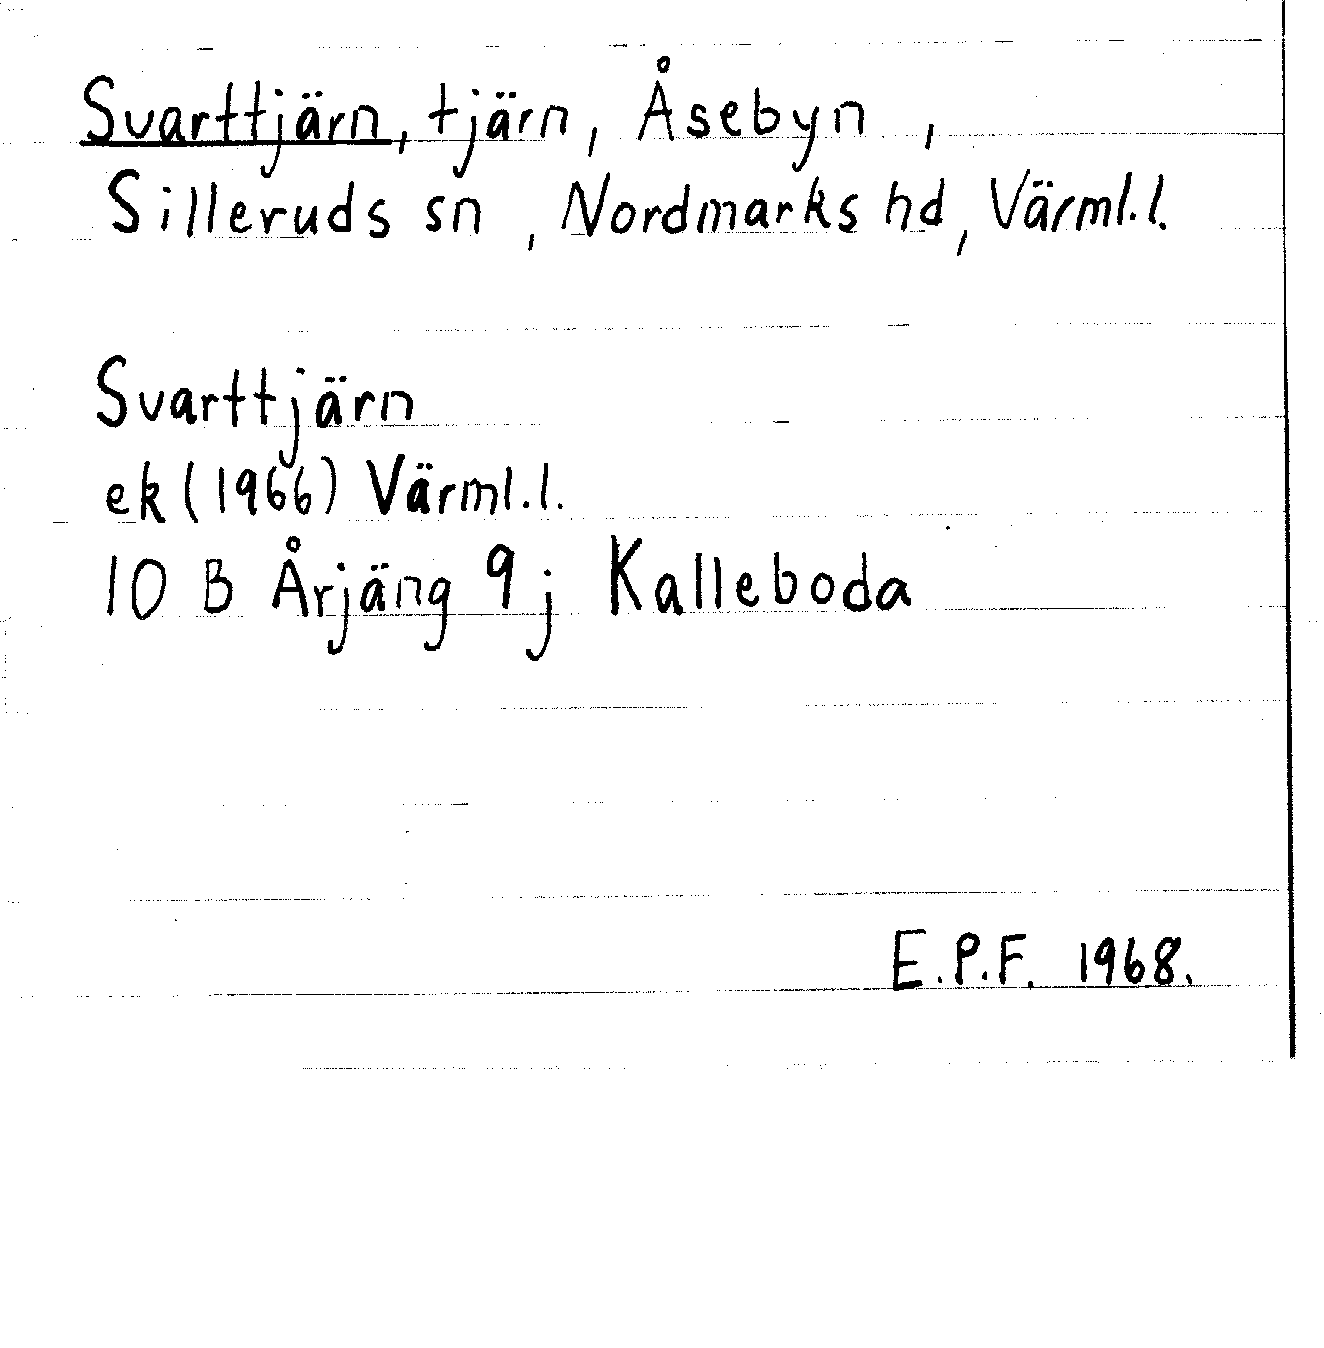 Svarttjärn, tjärn, Åsebyn ,
Silleruds sn , Nordmarks hd, Värml.l.
Svarttjärn
ek (1966) Värml.l.
10 B Årjäng 9 j Kalleboda
E.P.F. 1968.